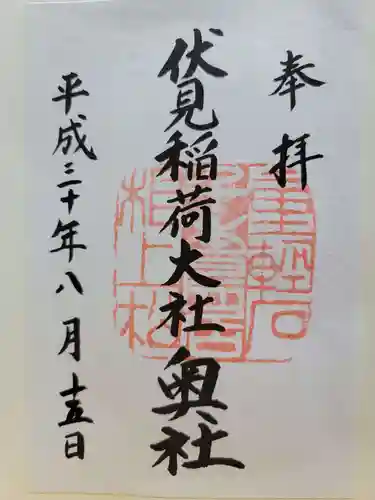 奉拝
伏見稲荷大社奥社
平成三十年八月十五日